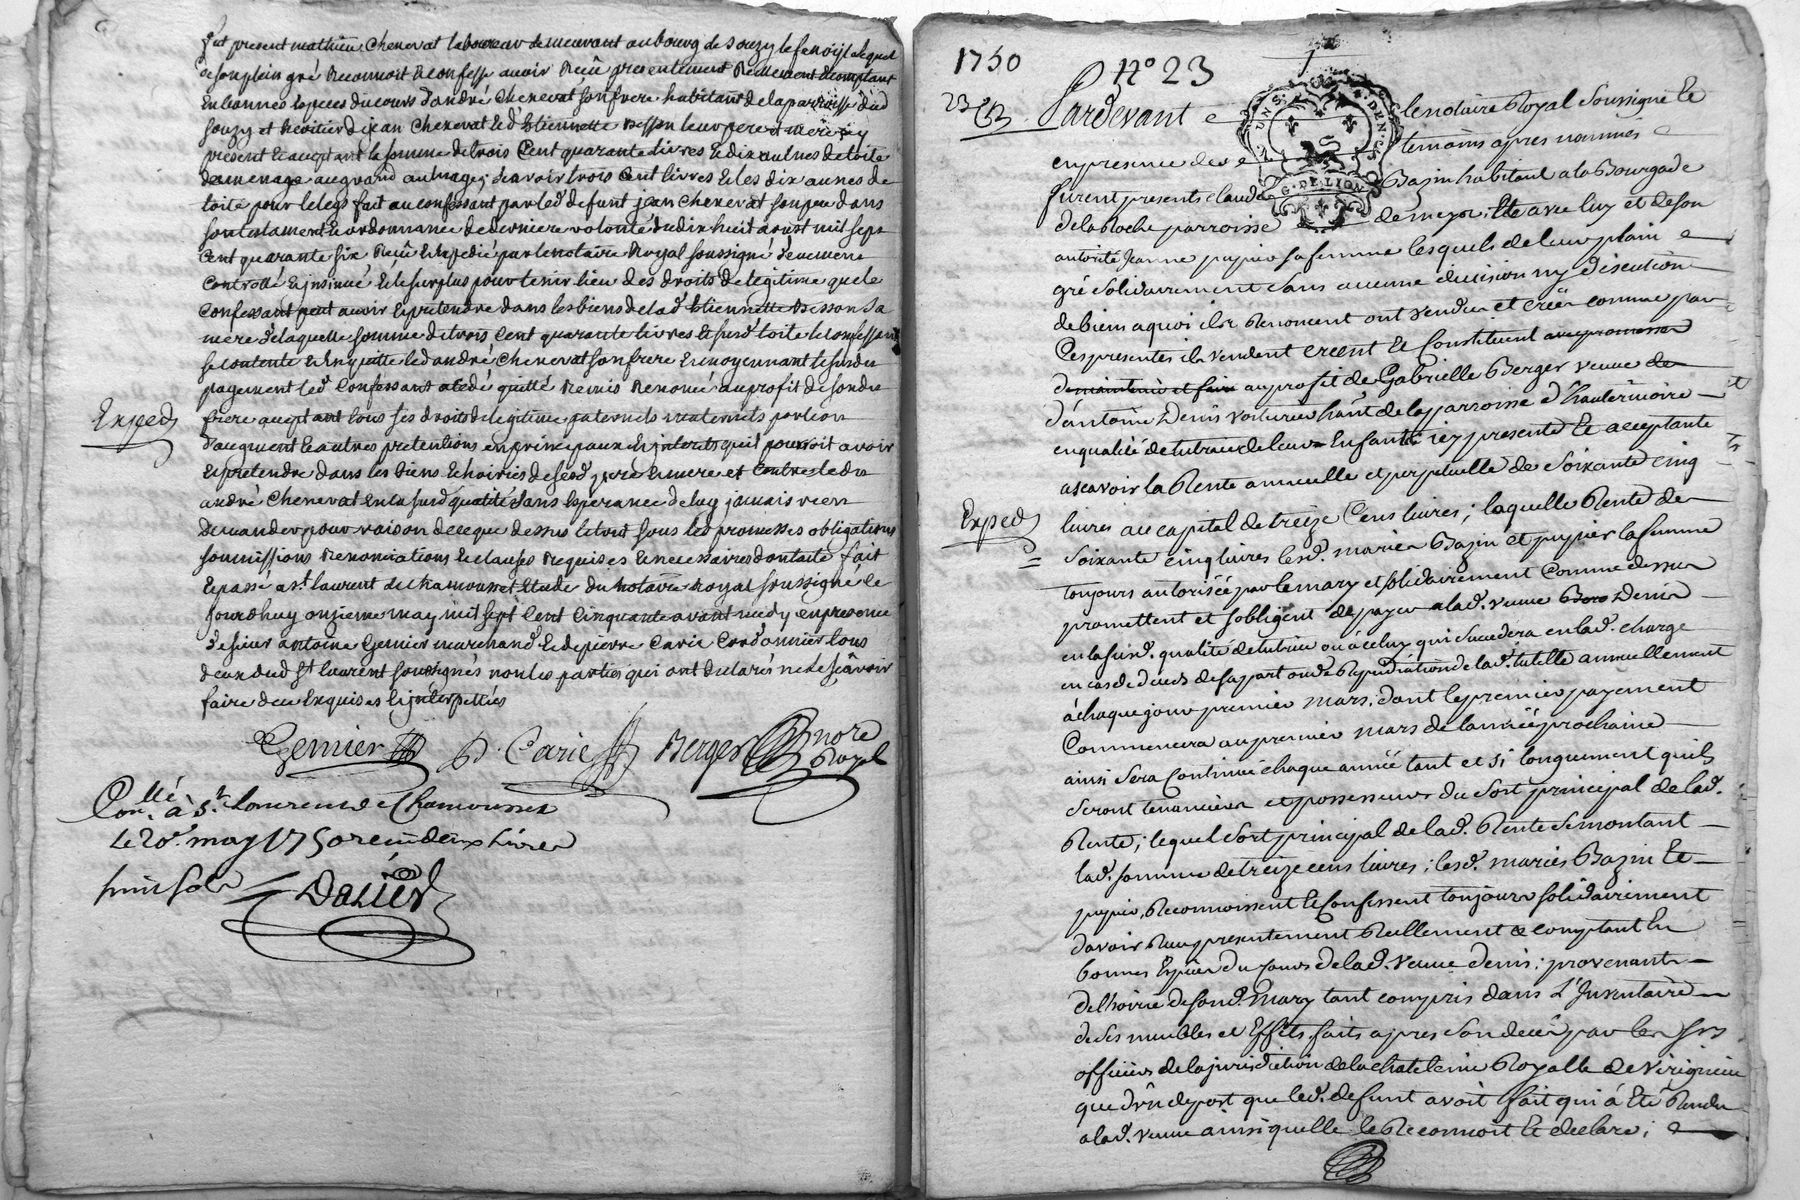 fut present mathieu Chenevat laboureur demeurant au bourg de Souzy le
de son plein gré Reconnoit & confesse avoir Reçu presentement Reellement & comptant
En bonnes Especes du cours d'andré Chenevat son frere habitant de la parroisse dud
Souzy et heritier de jean Chenevat & d'Etiennette Besson leur pere et mere icy
present & acceptant la somme de trois Cent quarante livres & dix aulnes de toile
de menage au grand aulnage; Scavoir trois Cent livres & les dix aunes de
toile pour le legs fait au confessant par led. defunt jean Chenevat son pere dans
son testament & ordonnance de derniere volonté du dix huit aoust mil sept
Cent quarante six Reçu & Expedié par le notaire Royal soussigné düement
Controllé & insinué & le surplus pour tenir lieu des droits de legitime que le
Confessant peut avoir & pretendre dans les biens de lad. Etiennette Besson Sa
mere de laquelle somme de trois Cent quarante livres & susd. toile le confessant
se contente & En quitte led. andré Chenevat son frere & moyennant le susdit
payement led. Confessant a cedé quitté Remis Renoncé au profit de son dit
frere acceptant tous ses droits de legitime paternels maternels portion
d'augment & autres pretentions en principaux & interets qu'il pourroit avoir
& pretendre dans les Biens & hoiries de sesd. pere & mere et Contre led.
andré Chenevat En la susd. qualité Sans Esperance de luy jamais rien
Demander pour raison de ce que dessus le tout sous les promesses obligations
soumissions Renonciations & clauses Requises & necessaires dont acte fait
& passé a St. laurent de Chamousset Etude du notaire Royal soussigné le
jourd'huy onzieme may mil sept Cent Cinquante avant midy en presence
de sieur antoine Gemier marchand & de pierre Carie Cordonnier tous
deux dud. St. laurent soussignés non les parties qui ont declaré ne le scavoir
faire de ce Enquises & interpellées
Exped
Gemier P. Carie Berger nore
Royal
Collé.
Con. à St. Laurent de Chamousset
Le 20e. may 1750 reçu deux Livres
huit sols
Dalier
1750 N° 23
23
Pardevant le notaire Royal Soussigné &
en presence des temoins apres nommés
furent presents claude Bazin habitant a la Bourgade
G. DE LION
de la Roche parroisse de meys, & avec luy et de son
autorité Jeanne pupier sa femme lesquels de leur plain
gré solidairement sans aucune division ny discution
de biens a quoi ils Renoncent ont vendu et créé comme par
Ces presentes ils vendent creent & Constituent avec promesse
de maintenir et faire au profit de Gabrielle Berger veuve de
d'antoine Denis voiturier hant. de la parroisse d'hauterivoire
en qualité de tutrice de leurs Enfants icy presente & acceptante
ascavoir la Rente annuelle et perpetuelle de Soixante cinq
livres au capital de treize Cens livres; laquelle Rente de
Exped
Soixante cinq livres lesd. mariés Bazin et pupier la femme
toujours autorisée par le mary et solidairement Comme dessus
promettent et s'obligent de payer a lad. veuve Denis
en la susd. qualité de tutrice ou á celuy qui succedera en lad. charge
en cas de deceds de sa part ou de Repudiation de lad. tutelle annuellement
à chaque jour premier mars, dont le premier payement
Commencera au premier mars de l'année prochaine
ainsi sera Continué chaque année tant et si longuement qu'ils
seront tenanciers et possesseurs du Sort principal de lad.
Rente; lequel sort principal de lad. Rente se montant
lad. somme de treize cens livres; lesd. mariés Bazin &
pupier, Reconnoissent & confessent toujours solidairement
d'avoir Reçu presentement Reellement & comptant En
bonnes Especes du cours de lad. veuve denis; provenant
de l'hoirie de sond. mary tant compris dans L'Inventaire
de ses meubles et Effets faits apres son decès par les srs
officiers de la jurisdiction de la chatelenie Royalle de
que d'un depost que led. defunt avoit fait qui á Eté Rendu
a lad. veuve ainsi quelle le Reconnoit & declare;